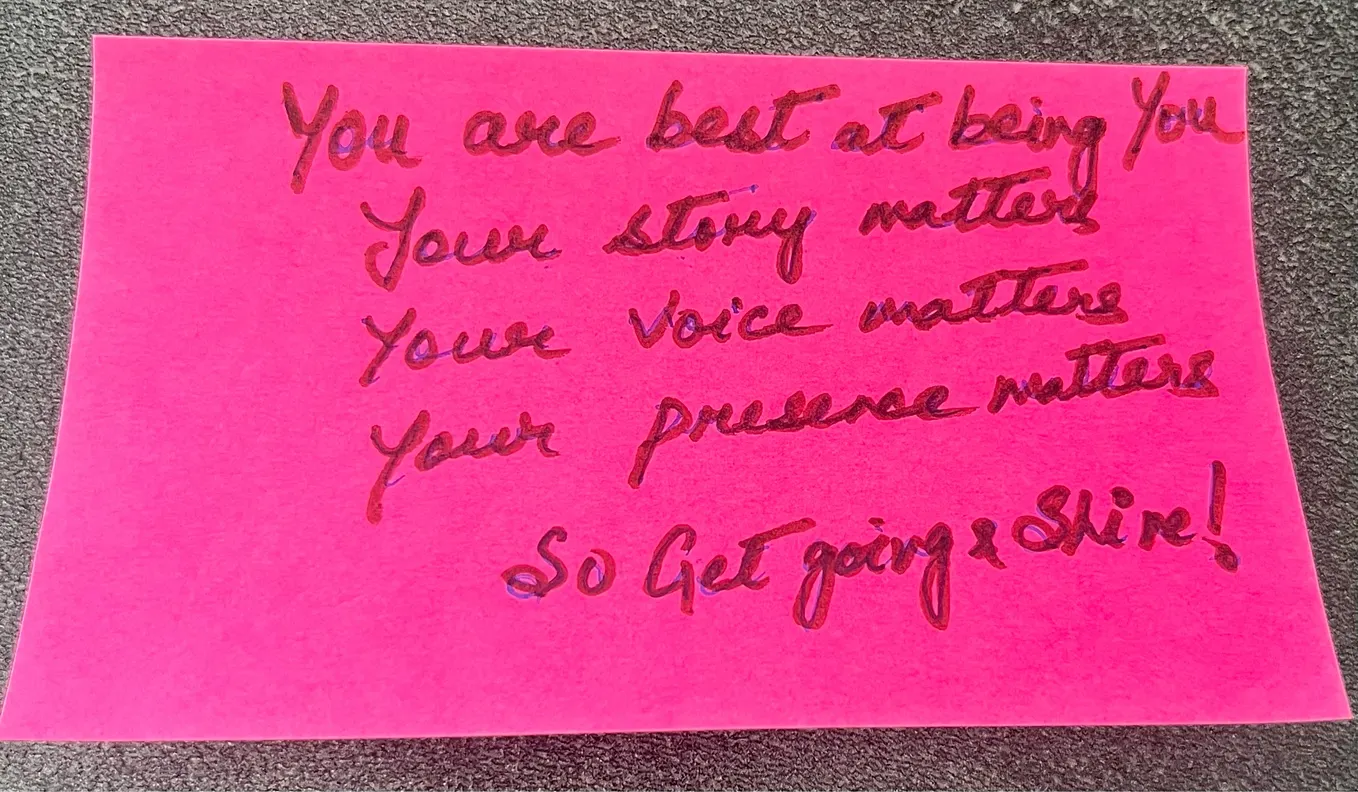 You are best at being You
Your story matters
Your voice matters
Your presence matters
So Get going & Shine!